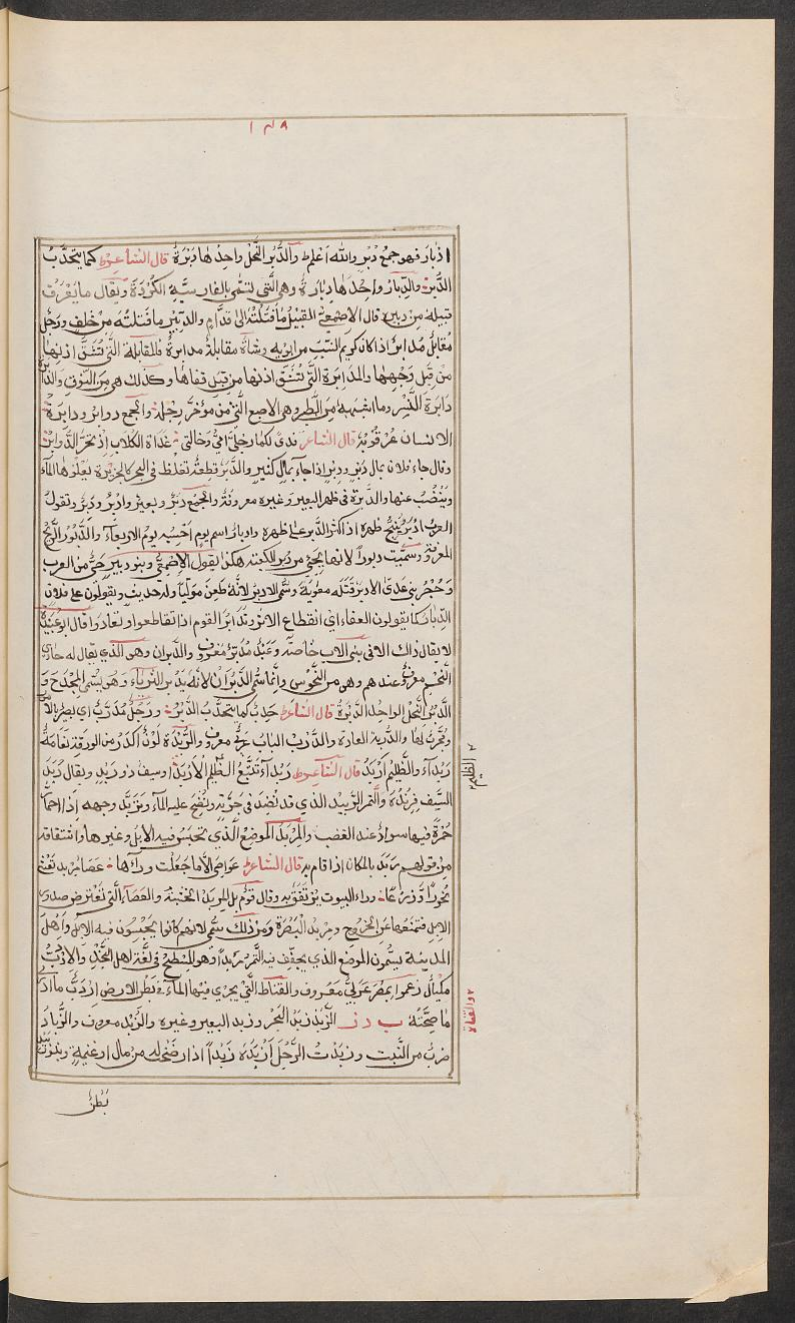 ١٨٩
ادبار فهو جمع دبر والله اعلم والدَّبْر النَّحل واحدها دَبْرَة قال الشاعر كما يتحدَّبُ
الدَّبْر والدِّبار واحدها دِبارة وهي التي تسمى بالفارسيه الكُرْدَة ويقال ما يَعْرف
قبيله من دبيره قال الاصمعي القبيل ما فتلته الى قدّام والدبير ما فتلته من خلف ورجل
مُقابَل مُدابَر اذا كان كريم النسب من ابويه وشاة مقابلة مدابرة فالمقابلة التي تشق اذنها
من قبل وجهها والمدابَرة التي تُشَقّ اذنها من قبل قفاها وكذلك هي من النوق والدا
دابرة النسر وما اشبهه من الطير وهي الاصبع التي من مؤخر رجله والجمع دوابر ودابرة
الانسان عرقوبه قال الشاعر فدى لكما رجلي امي وخالتي غداة الكلاب اذ تحز الدوابر
وقال جاء فلان بمال دبر ودبر اذا جاء بمال كثير والدبر قطعة تغلظ في البحر كالجزيرة يعلوها الماء
وينضب عنها والدَّبَرة في ظهر البعير وغيره معروفة والجمع دَبَر وبعير وادبر ودَبِر وتقول
العرب ادبر ظهره اذا كثر الدبر على ظهره ودبار اسم يوم احسبه يوم الاربعاء والدبور الريح
المعروفة وسميت دبوراً لانها تجئ من دبر الكعبة هكذا يقول الاصمعي وبنو دبير حي من العرب
وحُجْر بن عدي الادبر قتله معوية وسمي الادبر لانه طعن موليا وله حديث ويقولون على فلان
الدبار كما يقولون العفاء اي انقطاع الاثر وتدابر القوم اذا تقاطعوا وتعادوا قال ابو عبيدة
لا يقال ذلك الا في بني الاب خاصة وعبد مُدَبَّر معروف والدبران وهو الذي يقال له حادي
النجم معروف عندهم وهي من النحوس وانما سمي الدبران لانه يدبر الثرياء وهو يسمى المجدح و
الدَّبر النحل الواحد الدبرة قال الشاعر حدب كما يتحدب الدبر ورجل مُدَرَّب اي بصير بالامور
ومجرب لها والدربة العادة والدرب الباب عربي معروف والرُّبْدَة لون اكدر من الورقة نعامة
ربداء والظليم أربد قال الشاعر ربداء تتبع الظلم الاربدا وسيف ذو رُبَد ويقال رُبَد
السيف فرنده والتمر الربيد الذي قد نضد في جرة ونضح عليه الماء وتربد وجهه اذا احمر
حمرة فيها سواد عند الغضب والمربد الموضع الذي تحبس فيه الابل وغيرها واشتقاقه
من قولهم ربد بالمكان اذا قام به قال الشاعر عواصي الا ما جعلت وراءها عصا مربد تغشى
نحورا واذرعا وراء البيوت وقال قوم بل المربد الخشبة والعصا التي تعترض صدور
الابل فتمنعها عن الخروج ومربد البصرة ومن ذلك سمي لانهم كانوا يحبسون فيه الابل واهل
المدينة يسمون الموضع الذي يجفف فيه التمر مربداً وهو المسطح في لغة اهل نجد والاردب
مكيال زعموا بمصر عربي معروف والقناة التي يجري فيها الماء في بطن الارض اردب ما ادري
ما صحته ب د ز الزَّبد زبد البحر وزبد البعير وغيره والزُّبد معروف والزُّباد
ضرب من النبت وزبدت الرجل ازبده زبداً اذا رضخت له من مال او غنيمة وبذرته
بَطن
الظليم
والقناة